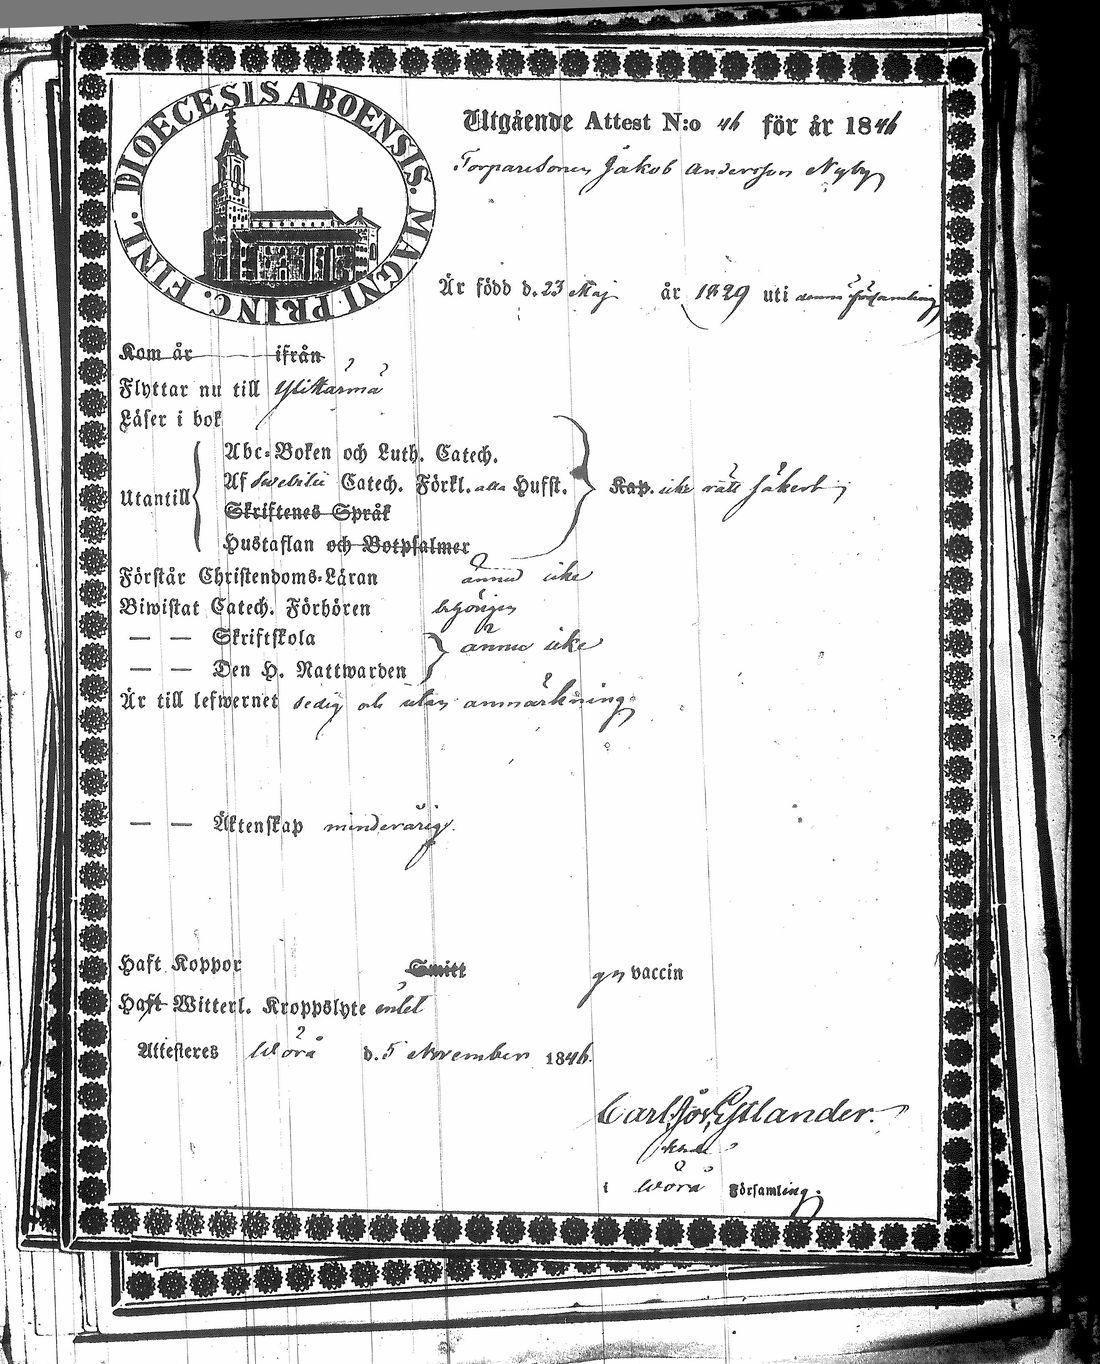 DIOECESIS ABOENSIS. MAGNI PRINC. FINL.
Utgående Attest N:o 46 för år 1846
Torparesonen Jakob Andersson Nyby
Är född d. 23 Maj år 1829 uti denna församling
Kom år ifrån
Flyttar nu till Ylikärmä
Läser i bok
Utantill
Abc-Boken och Luth. Catech.
Af Svebilii Catech. Förkl. alla Hufst.
Skriftenes Språk
Hustaflan och Botpsalmer
Kap. icke rätt säkert;
Förstår Christendoms-Läran ännu icke
Biwistat Catech. Förhören behörigen
— — Skriftskola
— — Den H. Nattwarden
ännu icke
Är till lefwernet sedig och utan anmärkning
— — Äktenskap minderårig.
Haft Koppor Smitt gn vaccin
Haft Witterl. Kroppslyte intet
Attesteres Wörå d. 5 November 1846.
Carl Estlander.
i Wörå Församling.